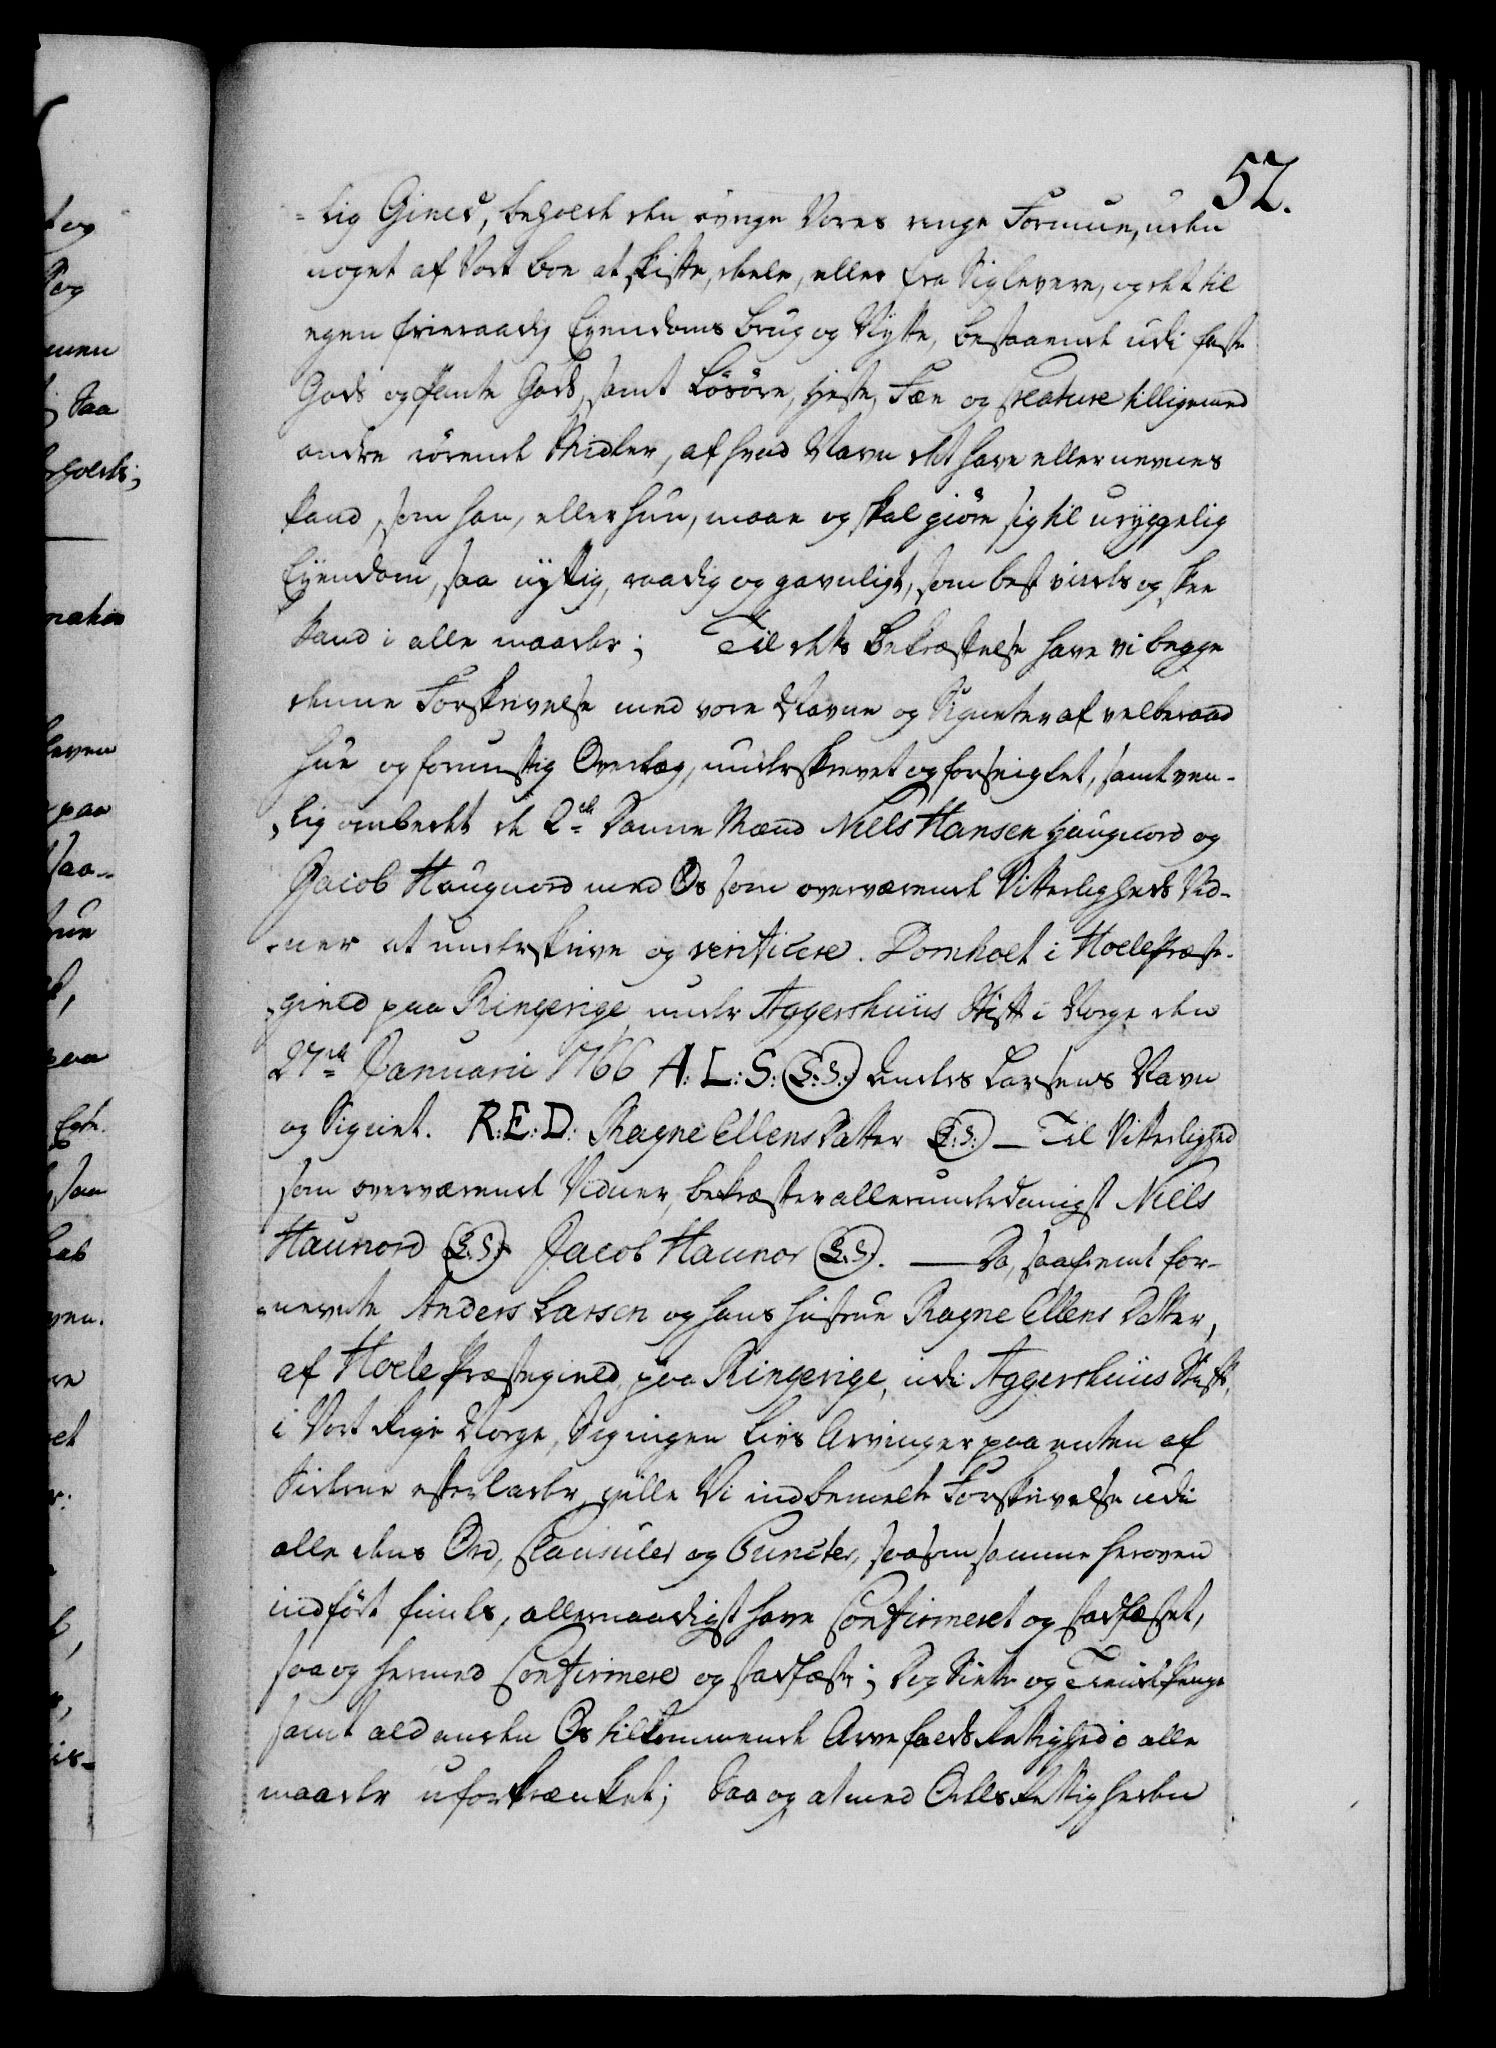 52.
-lig Gield, beholde den øvrige Vores ringe Formue, uden
noget af Vort Boe at skifte, deele, eller fra Sig levere, og det til
egen frieraadig Eyendoms Brug og Nytte, bestaaende udi faste
Gods og Pante Gods, samt Løsøre, Heste, Fæe og Creature tilligemed
andre rørende Midler, af hvad Navn det have eller nevnes
kand, som han, eller hun, maae og skal giøre sig til uryggelig
Eyendom, saa nyttig, raadig og gavnligt, som best vides og skee
kand i alle maader; Til dets Bekræftelse have vi begge
denne Forskrivelse med vore Navne og Signeter af velberaad
Hue og fornuftig Overlæg, underskrevet og forseiglet, samt ven-
-lig ombedet de 2de Danne Mænd Niels Hansen Haugnord og
Jacob Haugnord med Os som overværende Vitterligheds Vid-
-ner at underskrive og verificere. Domholt i Hoele Præste-
-gield paa Ringerige under Aggershuus Stift i Norge den
27de Januarii 1766 A: L: S: (L:S:) Anders Larsens Navn
og Signet. R: E: D: Ragne Ellens Datter (L:S:) — Til Vitterlighed
som overværende Vidner, bekræfter allerunderdanigst Niels
Haunord (L:S:) Jacob Haunor (L:S:). — Da, saafremt for-
-nevnte Anders Larsen og hans Hustrue Ragne Ellens Datter,
af Hoele Præstegield paa Ringerige, udi Aggershuus Stift,
i Vort Rige Norge, Sig ingen Livs Arvinger paa enten af
Siderne efterlader, ville Vi indbemelte Forskrivelse udi
alle dens Ord, Clausuler og Puncter, saasom samme heroven
indført findes, allernaadigst have Confirmeret og stadfæstet,
saa og hermed Confirmere og stadfæste; Dog Siette og Tiende Penge
samt ald anden Os tilkommende Arvefalds Rettighed i alle
maader uforkrænket; Saa og at med Odels Rettigheden